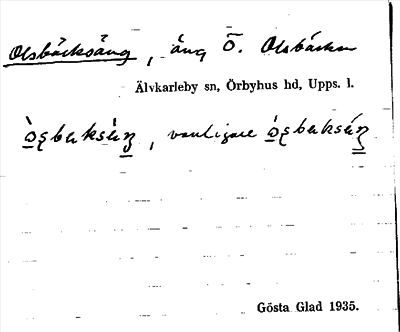 Olsbäcksäng, äng Ö. Olsbäcken
Älvkarleby sn, Örbyhus hd, Upps. l.
, vanligare
Gösta Glad 1935.